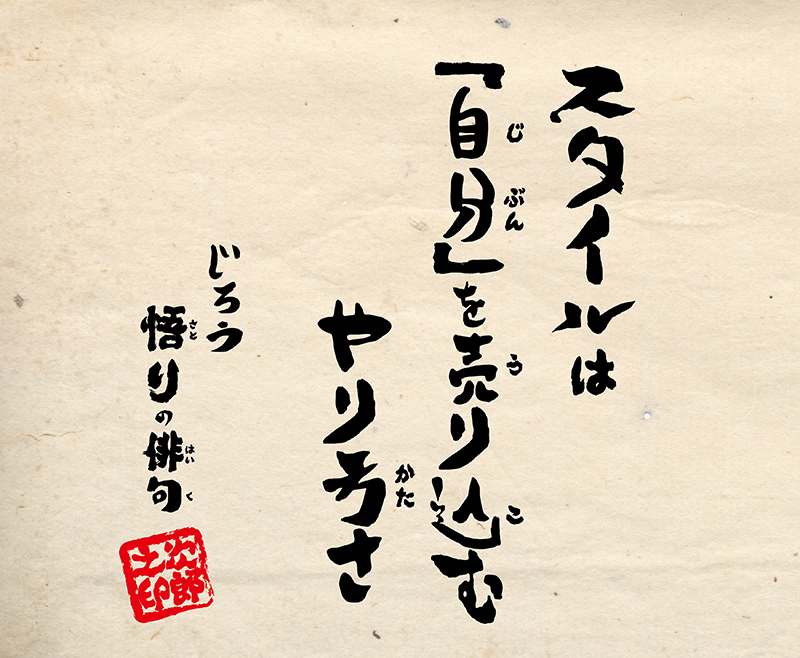 スタイルは
「自分」を売り込む
じぶん
う
こ
やり方さ
かた
じろう
悟りの俳句
さと
はいく
次郎
士印